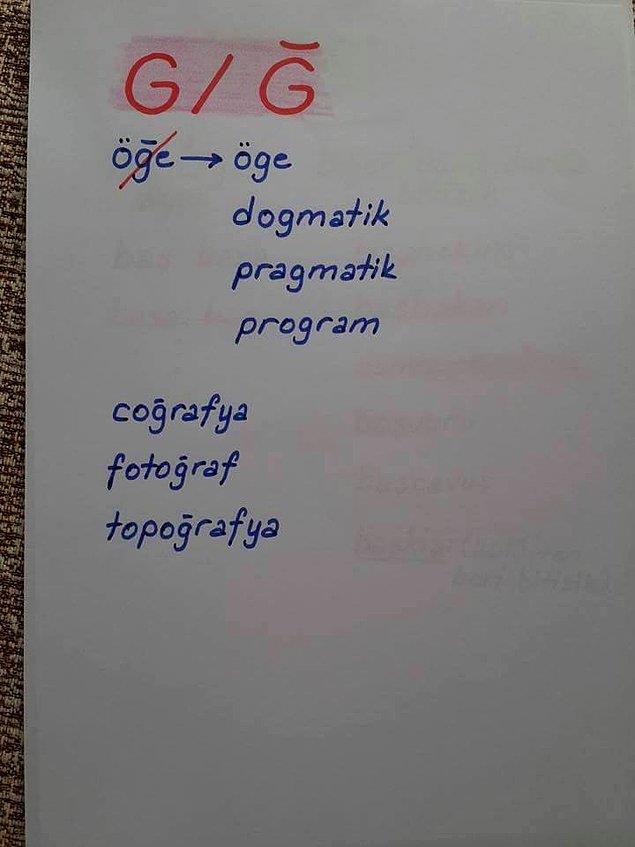 G / Ğ
öğe → öge
dogmatik
pragmatik
program
coğrafya
fotoğraf
topoğrafya